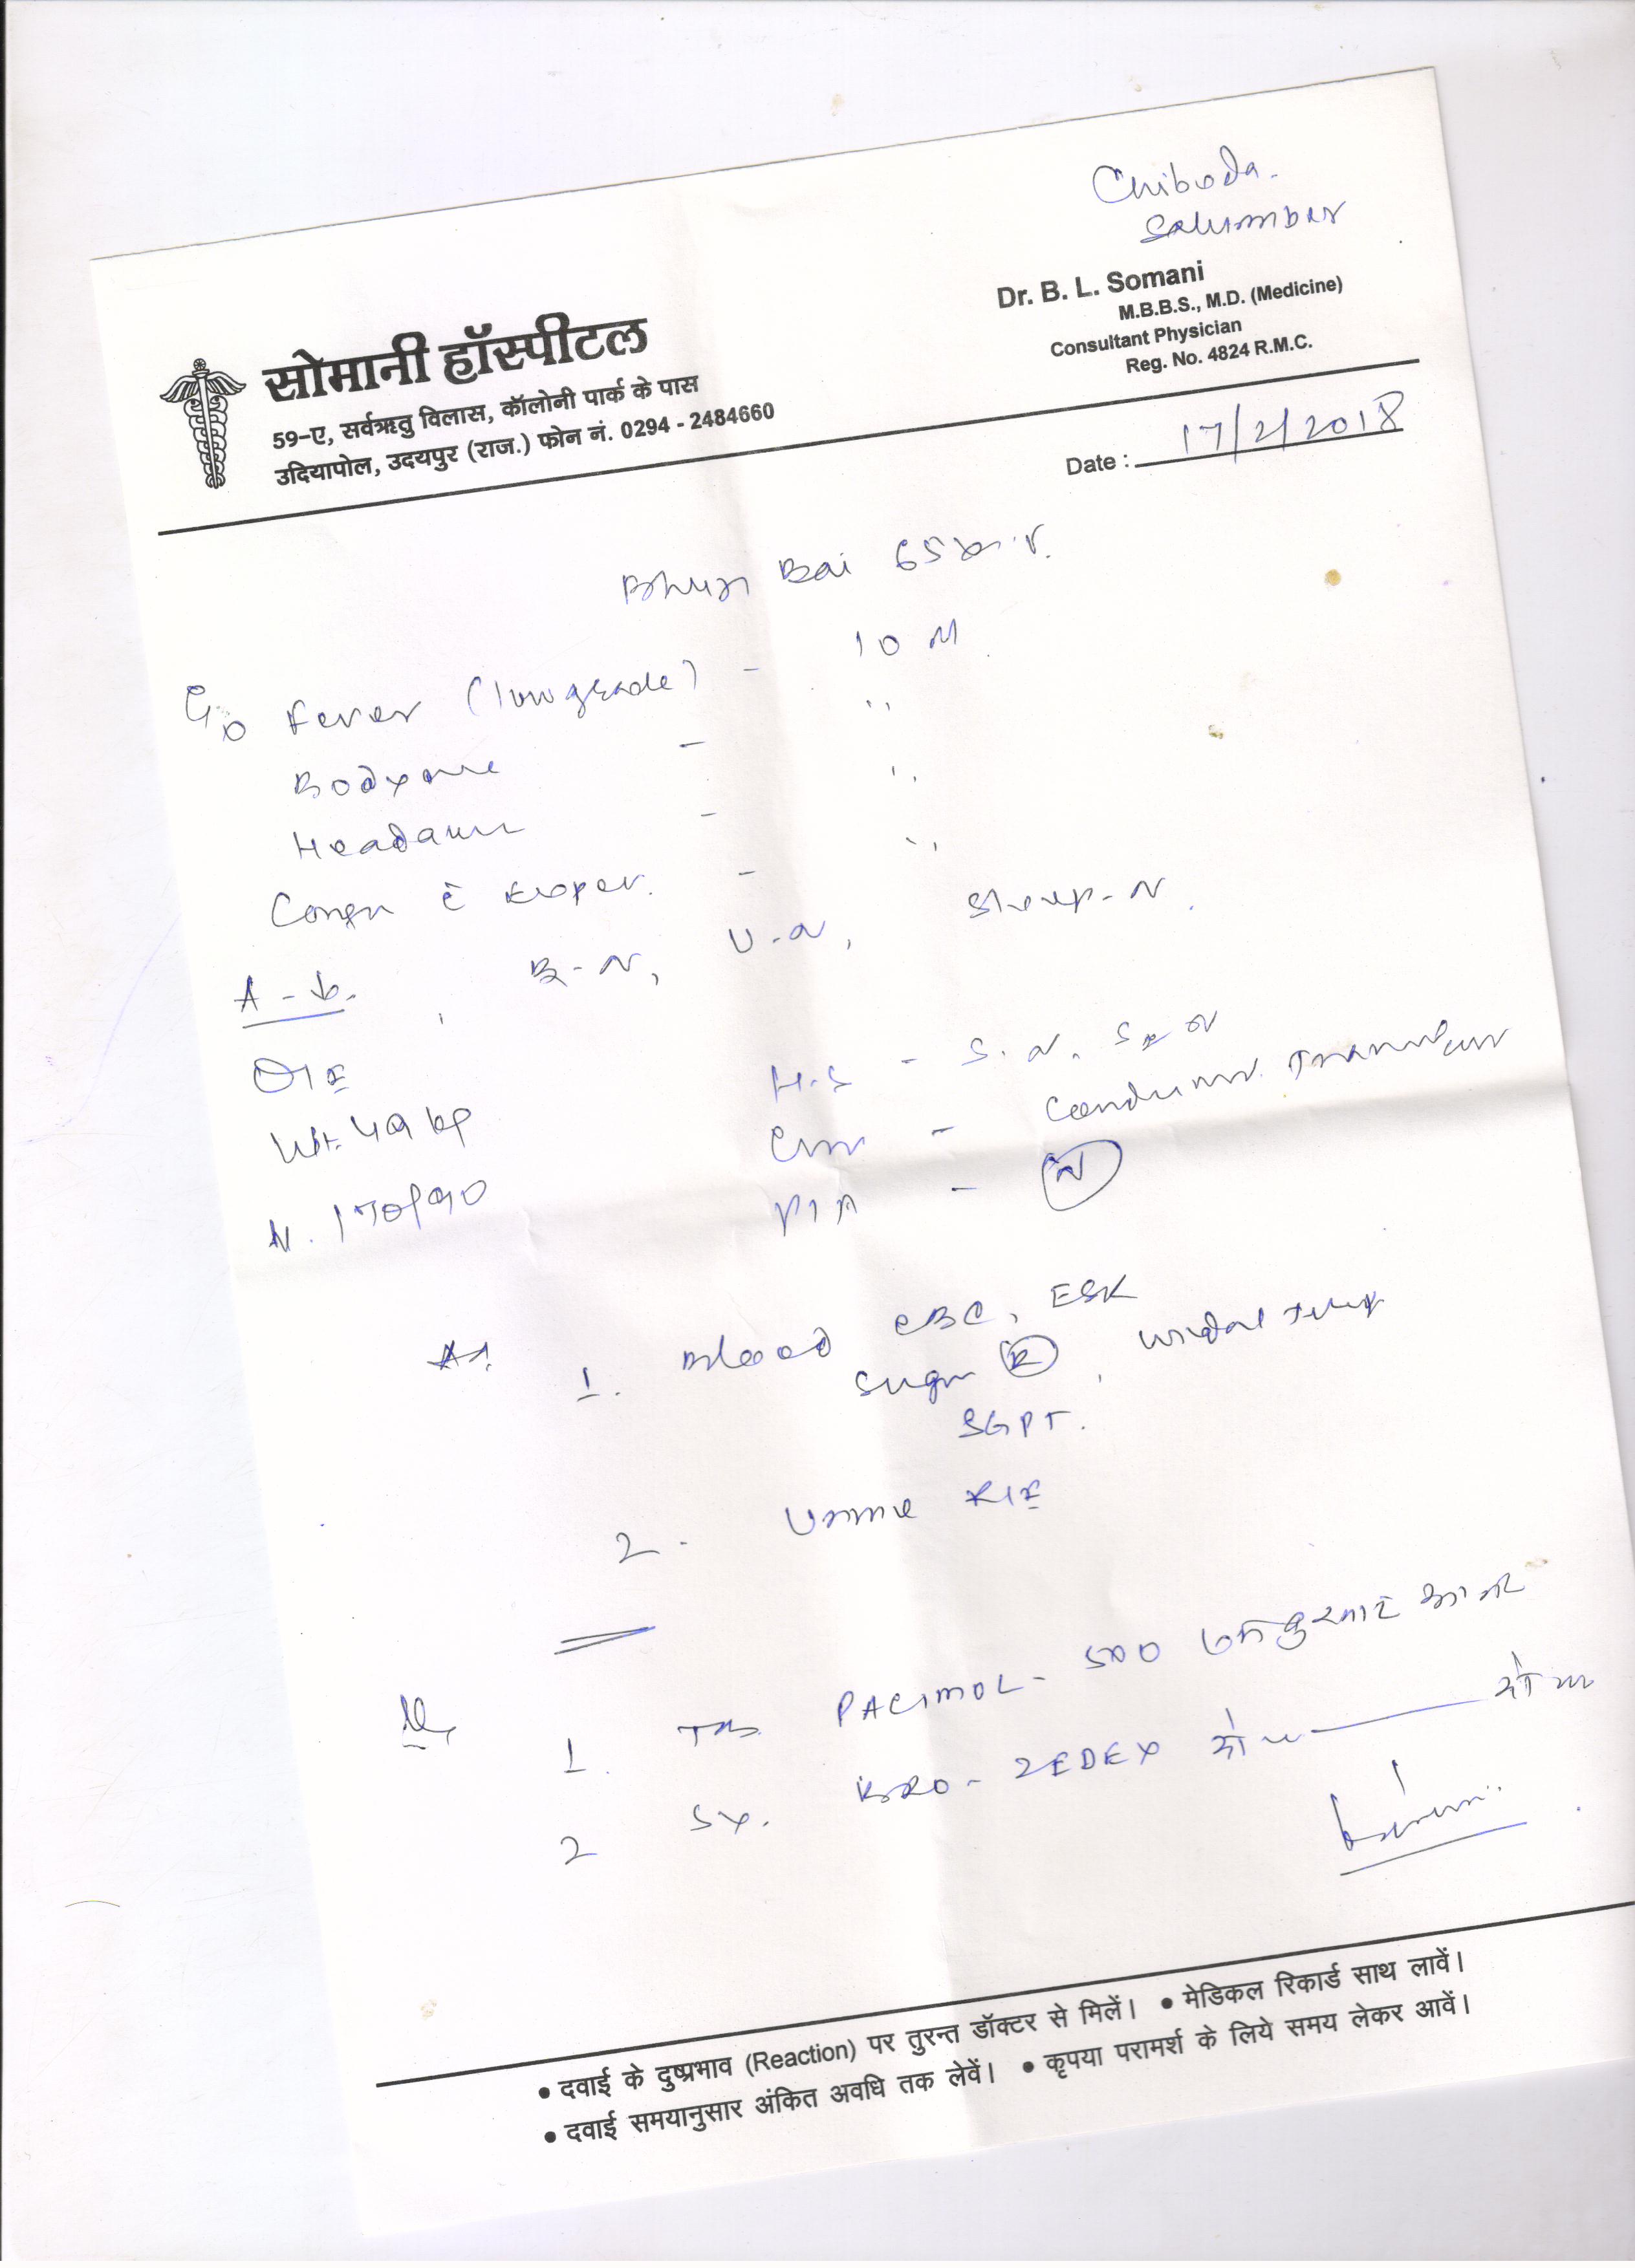 Chiboda.
Salumber
Dr. B. L. Somani
M.B.B.S., M.D. (Medicine)
Consultant Physician
Reg. No. 4824 R.M.C.
सोमानी हॉस्पीटल
59-ए, सर्वऋतु विलास, कॉलोनी पार्क के पास
उदियापोल, उदयपुर (राज.) फोन नं. 0294 - 2484660
Date : 17/2/2018
Bhuri Bai 65
C/o Fever (lowgrade) - 10 M
Bodyache - ,,
Headache - ,,
Cough c̄ Expec. - ,,
A - ↓. , B-N, U-N, Sleep-N.
O/E H.S - S.N.
Wt. 49 kg
170/90 P/A - N
1. Blood CBC, ESR
Sugar R, Widal test
SGPT.
2. Urine R/E
Rx
1. Tab. PACIMOL - 500
2 Sy. BRO-ZEDEX
• दवाई के दुष्प्रभाव (Reaction) पर तुरन्त डॉक्टर से मिलें। • मेडिकल रिकार्ड साथ लावें।
• दवाई समयानुसार अंकित अवधि तक लेवें। • कृपया परामर्श के लिये समय लेकर आवें।